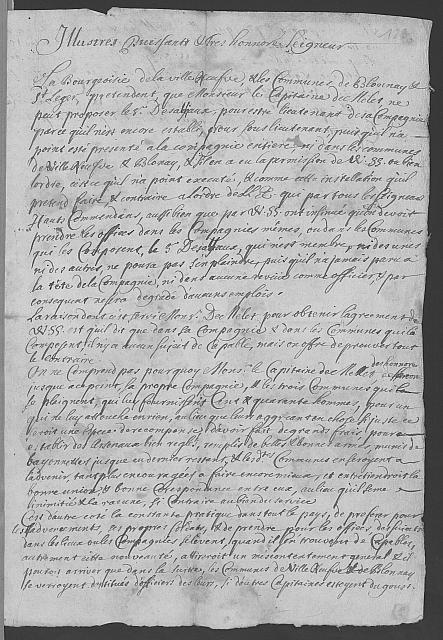 Illustres Puissants & Tres honnorés Seigneur
La Bourgeoisie de la ville Neufve & les Communes de Blonnay &
St Leger, pretendent, que Monsieur le Capitaine de Melet ne
peut proposer le Sr. Desassaux, pour estre lieutenant de sa Compagnie
parce qu'il n'est encore establi, pour sous lieutenant, puis qu'il n'a
point esté presenté a la compagnie entiere, ni dans les communes
de Ville Neufve & Blonay, & s'il en a eu la permission de VV. SS. ou bien
lordre, cest ce qu'il n'a point executé, & comme cette installation qu'il
pretend faire est contraire a lordre de L. E. qui par tous les Seigneurs
Hauts Commendans, aussi bien que par VV. SS. ont qu'on devoit
prendre les offices dans les Compagnies mêmes, ou dans les Communes
qui les Composent, le Sr. Desassaux, qui n'est membre, ni des unes
ni des autres, ne poura pas s'en plaindre, puis qu'il n'a jamais paru à
la tête de la Compagnie, ni dans aucune reveüe comme officier, & par
consequent ne sera degradé d'aucuns emplois.
La raison dont s'est servi Monsr. De Melet pour obtenir l'agreement de
VV. SS. est qu'il dit que dans sa Compagnie & dans les Communes qui la
Composent, il n'y a aucun sujet de Capable, mais on offre de prouver tout
le Contraire.
On ne Comprend pas pourquoy Monsr. le Capitaine de Mellet
jusque a ce point, sa propre Compagnie, & les trois Communes qui la
se plaignent, qui luy fournissent Cent & quarante hommes, pour un
qui ne luy attouche en rien, au lieu que leur aggreant une chose si juste ce
seroit une Espece de recompense, d'avoir fait de grands fraix pour
establir des arsenaux bien reglés, remplis de belles & bonnes armes, munis de
bayonnettes jusque au dernier restant, & les dtes Communes en seroyent a
ladvenir, tant plus encouragées a faire encore mieux, et entretiendroit la
bonne union, & bonne Correspondance entre eux, au lieu qu'il seme
linimitié & la rancune, si Contraire au bien du service
C'est d'autre costé la constante pratique dans tout le pays, de preferer pour
ladvancements, ses propres soldats, & de prendre pour les offices d'officiers
dans les lieux ou les Compagnies se levent, quand il s'en trouvent de Capables,
autrement cette nouveauté, attireroit un mescontentement general & il
pouroit arriver que dans la suitte, les Communes de Ville Neufve & de Blonnay,
se verroyent destitués d'officiers des leurs, si d'autres Capitaines estoyent du goust